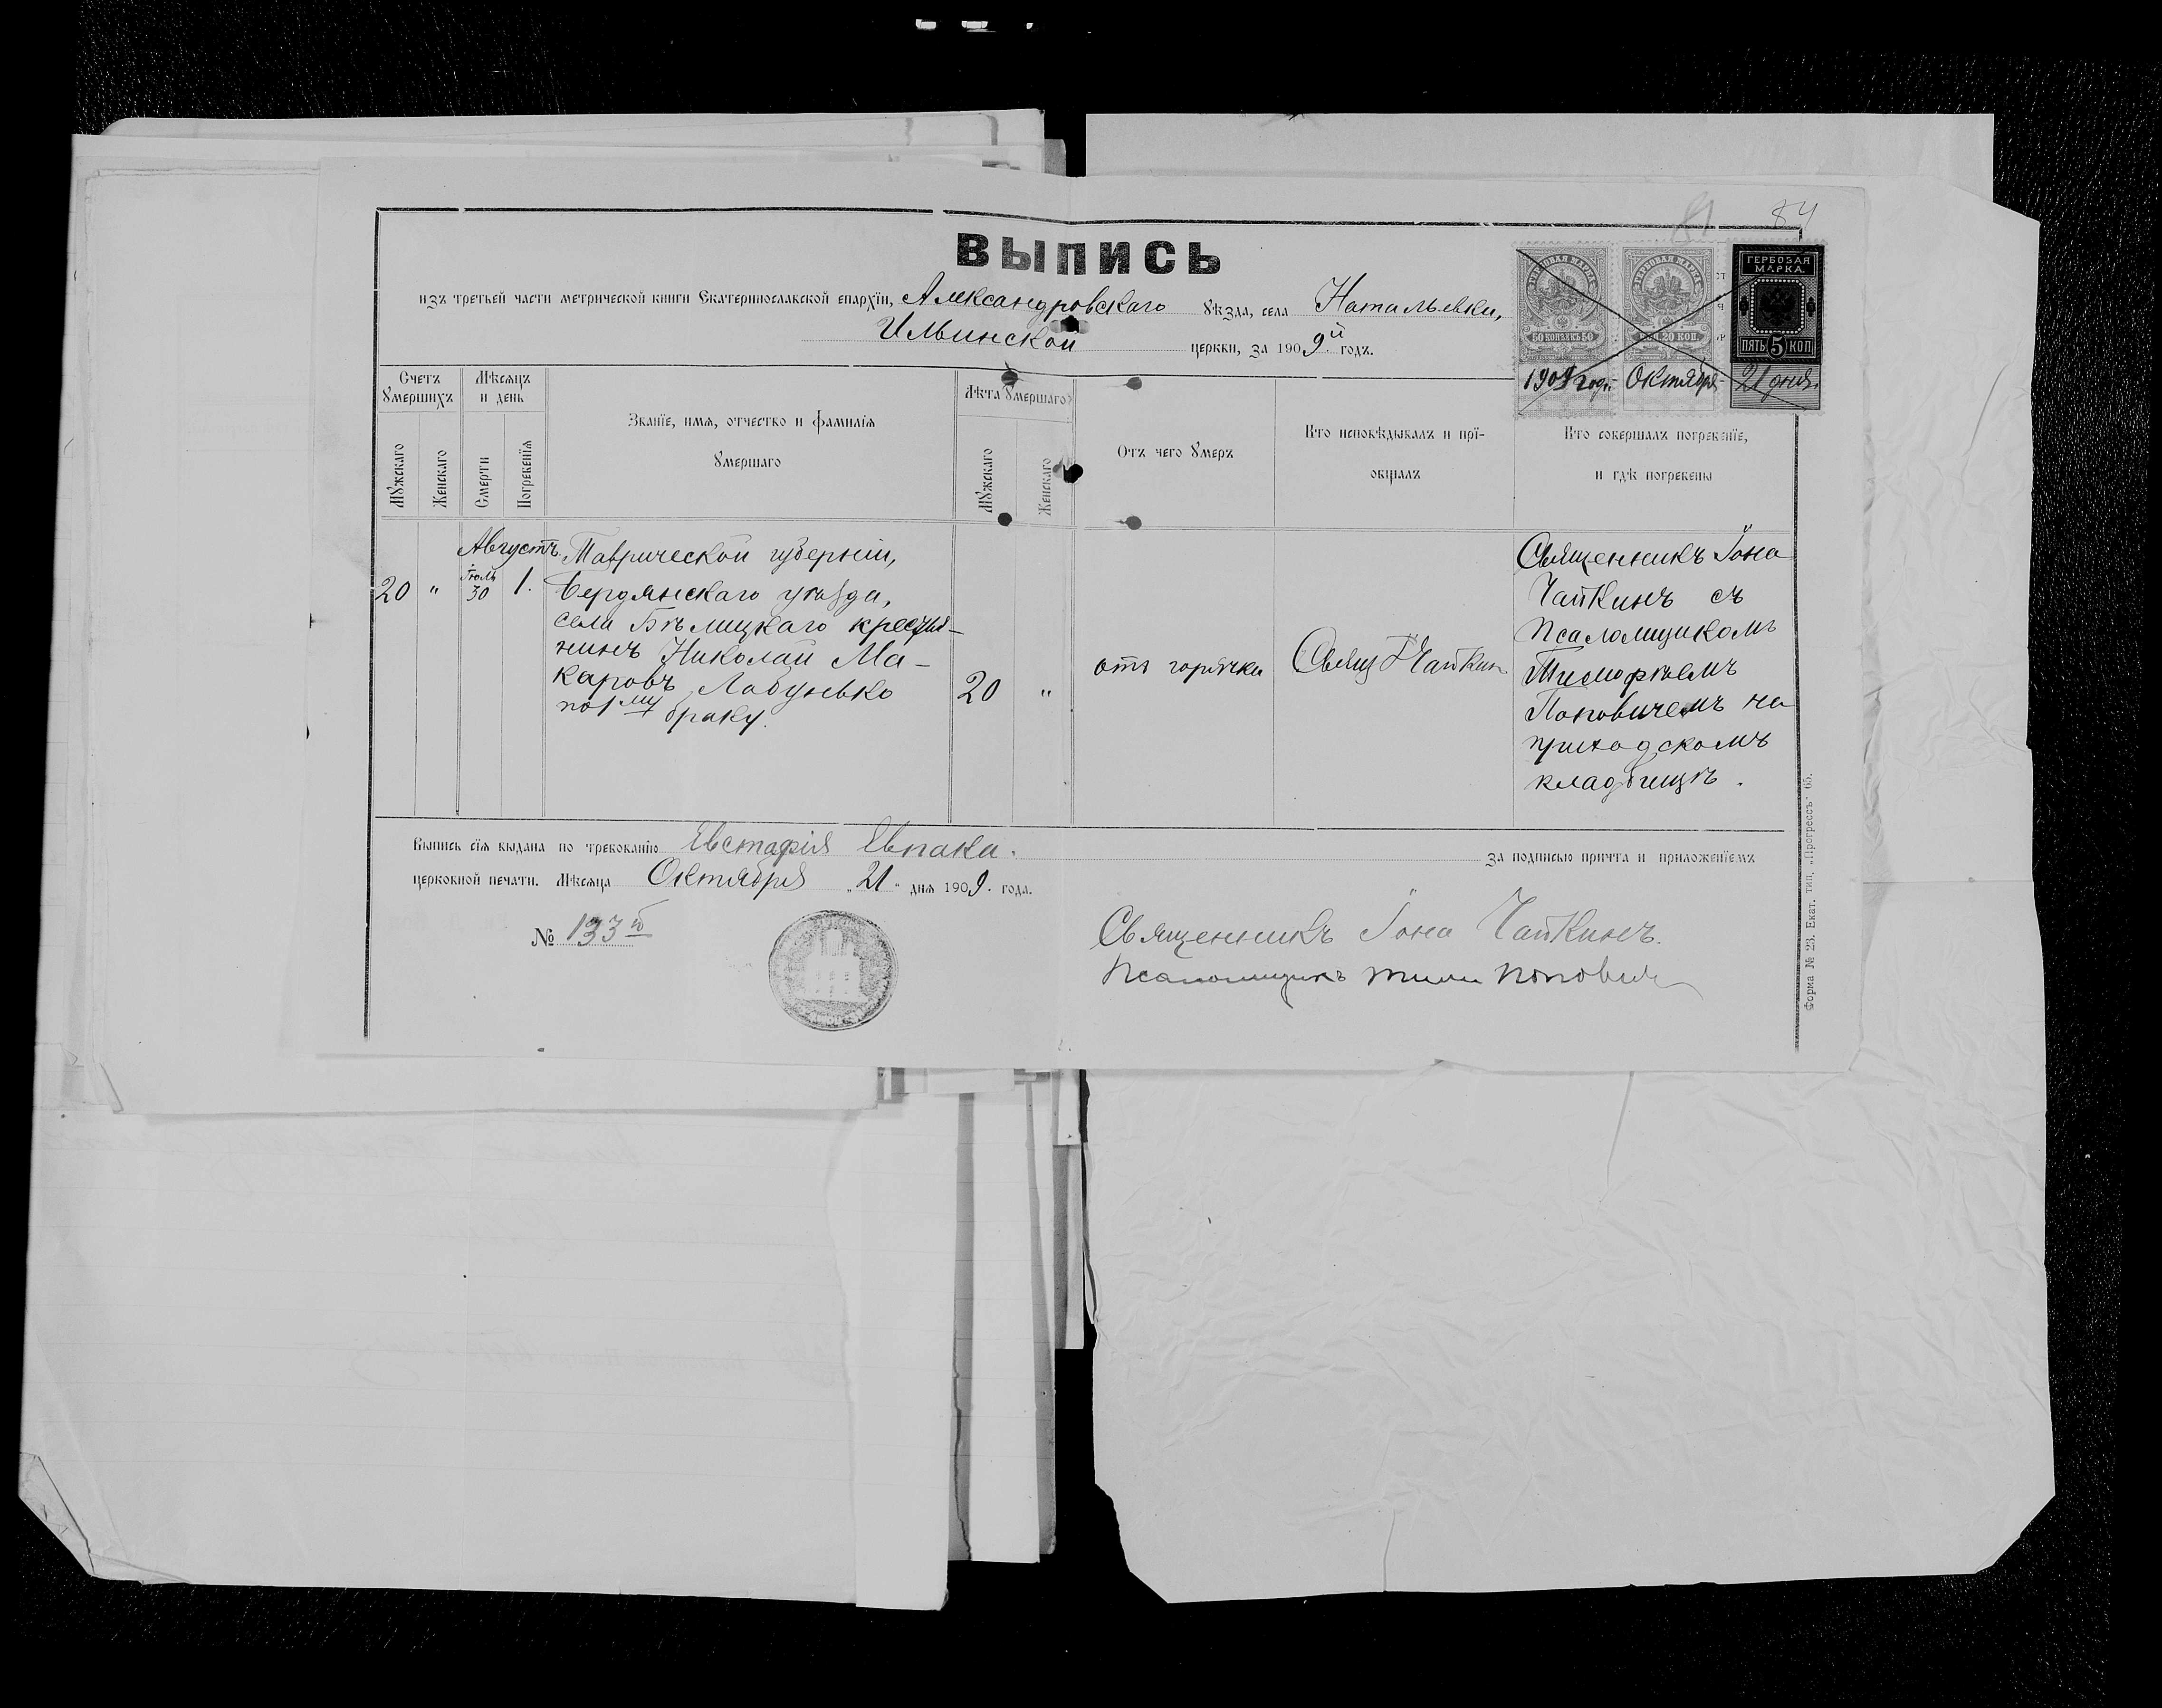 84
ВЫПИСЬ
изъ третьей части метрической книги Екатеринославской епархіи, Александровскаго уѣзда, села Натальевки,
Ильинской церкви, за 1909й годъ.
ГЕРБОВАЯ МАРКА
50 КОПѢЕКЪ 50
ГЕРБОВАЯ МАРКА
20 КОП.
ГЕРБОВАЯ
МАРКА
ПЯТЬ 5 КОП
1909 годъ Октября 21 дня.
Счетъ умершихъ
Мужскаго
Женскаго
Мѣсяцъ и день
Смерти
Погребенія
Званіе, имя, отчество и фамилія
умершаго
Лѣта умершаго
Мужскаго
Женскаго
Отъ чего умеръ
Кто исповѣдывалъ и прі-
общалъ
Кто совершалъ погребеніе,
и гдѣ погребены
20
"
Августъ
Іюль
30
1.
Таврической губерніи,
Бердянскаго уѣзда,
села Бѣлицкаго крестья-
нинъ Николай Ма-
каровъ Лабунько
по 1му браку.
20
"
отъ горячки
Свящ І Чайкин
Священникъ Іона
Чайкинъ съ
Псаломщикомъ
Тимофѣемъ
Поповичемъ на
приходскомъ
кладбищѣ.
Выпись сія выдана по требованію Евстафія Евпака. за подписью причта и приложеніемъ
церковной печати. Мѣсяца Октября „21" дня 1909. года.
№ 133й
Священникъ Іона Чайкинъ.
Псаломщикъ Тим Попович
Форма № 23. Екат. тип. „Прогрессъ" 65.